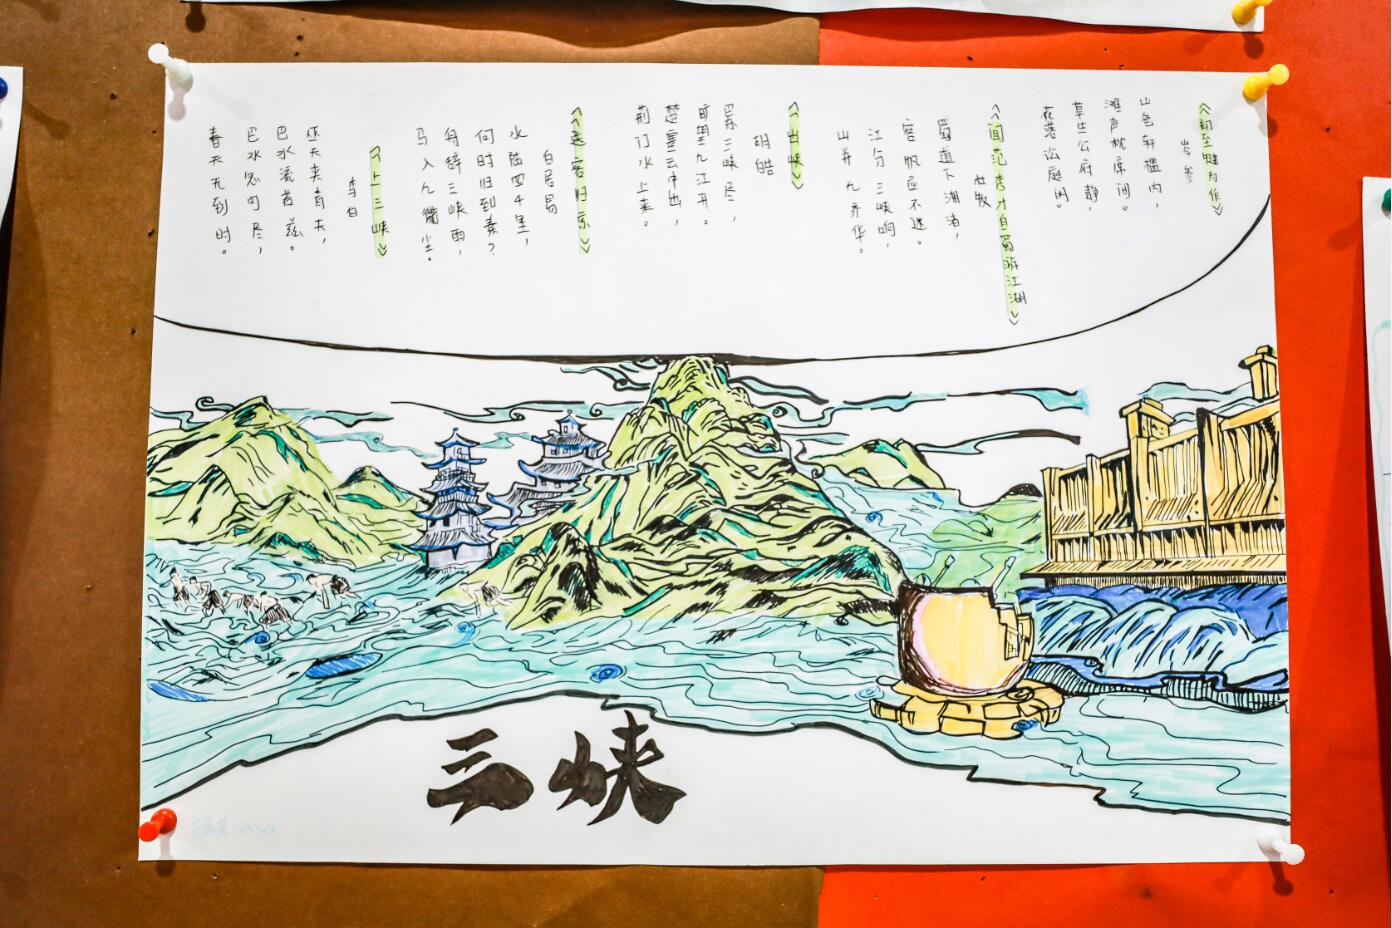 《初至犍为作》
岑参
山色轩槛内,
滩声枕席间。
草生公府静,
花落讼庭闲。
《闻范秀才自蜀游江湖》
杜牧
蜀道下湘渚,
客帆应不迷。
江分三峡响,
山并九齐华。
《出峡》
胡皓
巴东三峡尽,
旷望九江开。
楚塞云中出,
荆门水上来。
《送客归京》
白居易
水陆四千里,
何时归到秦?
舟辞三峡雨,
马入九衢尘。
《上三峡》
李白
巫天夹青天,
巴水流若兹。
巴水忽可尽,
春天无到时。
三峡